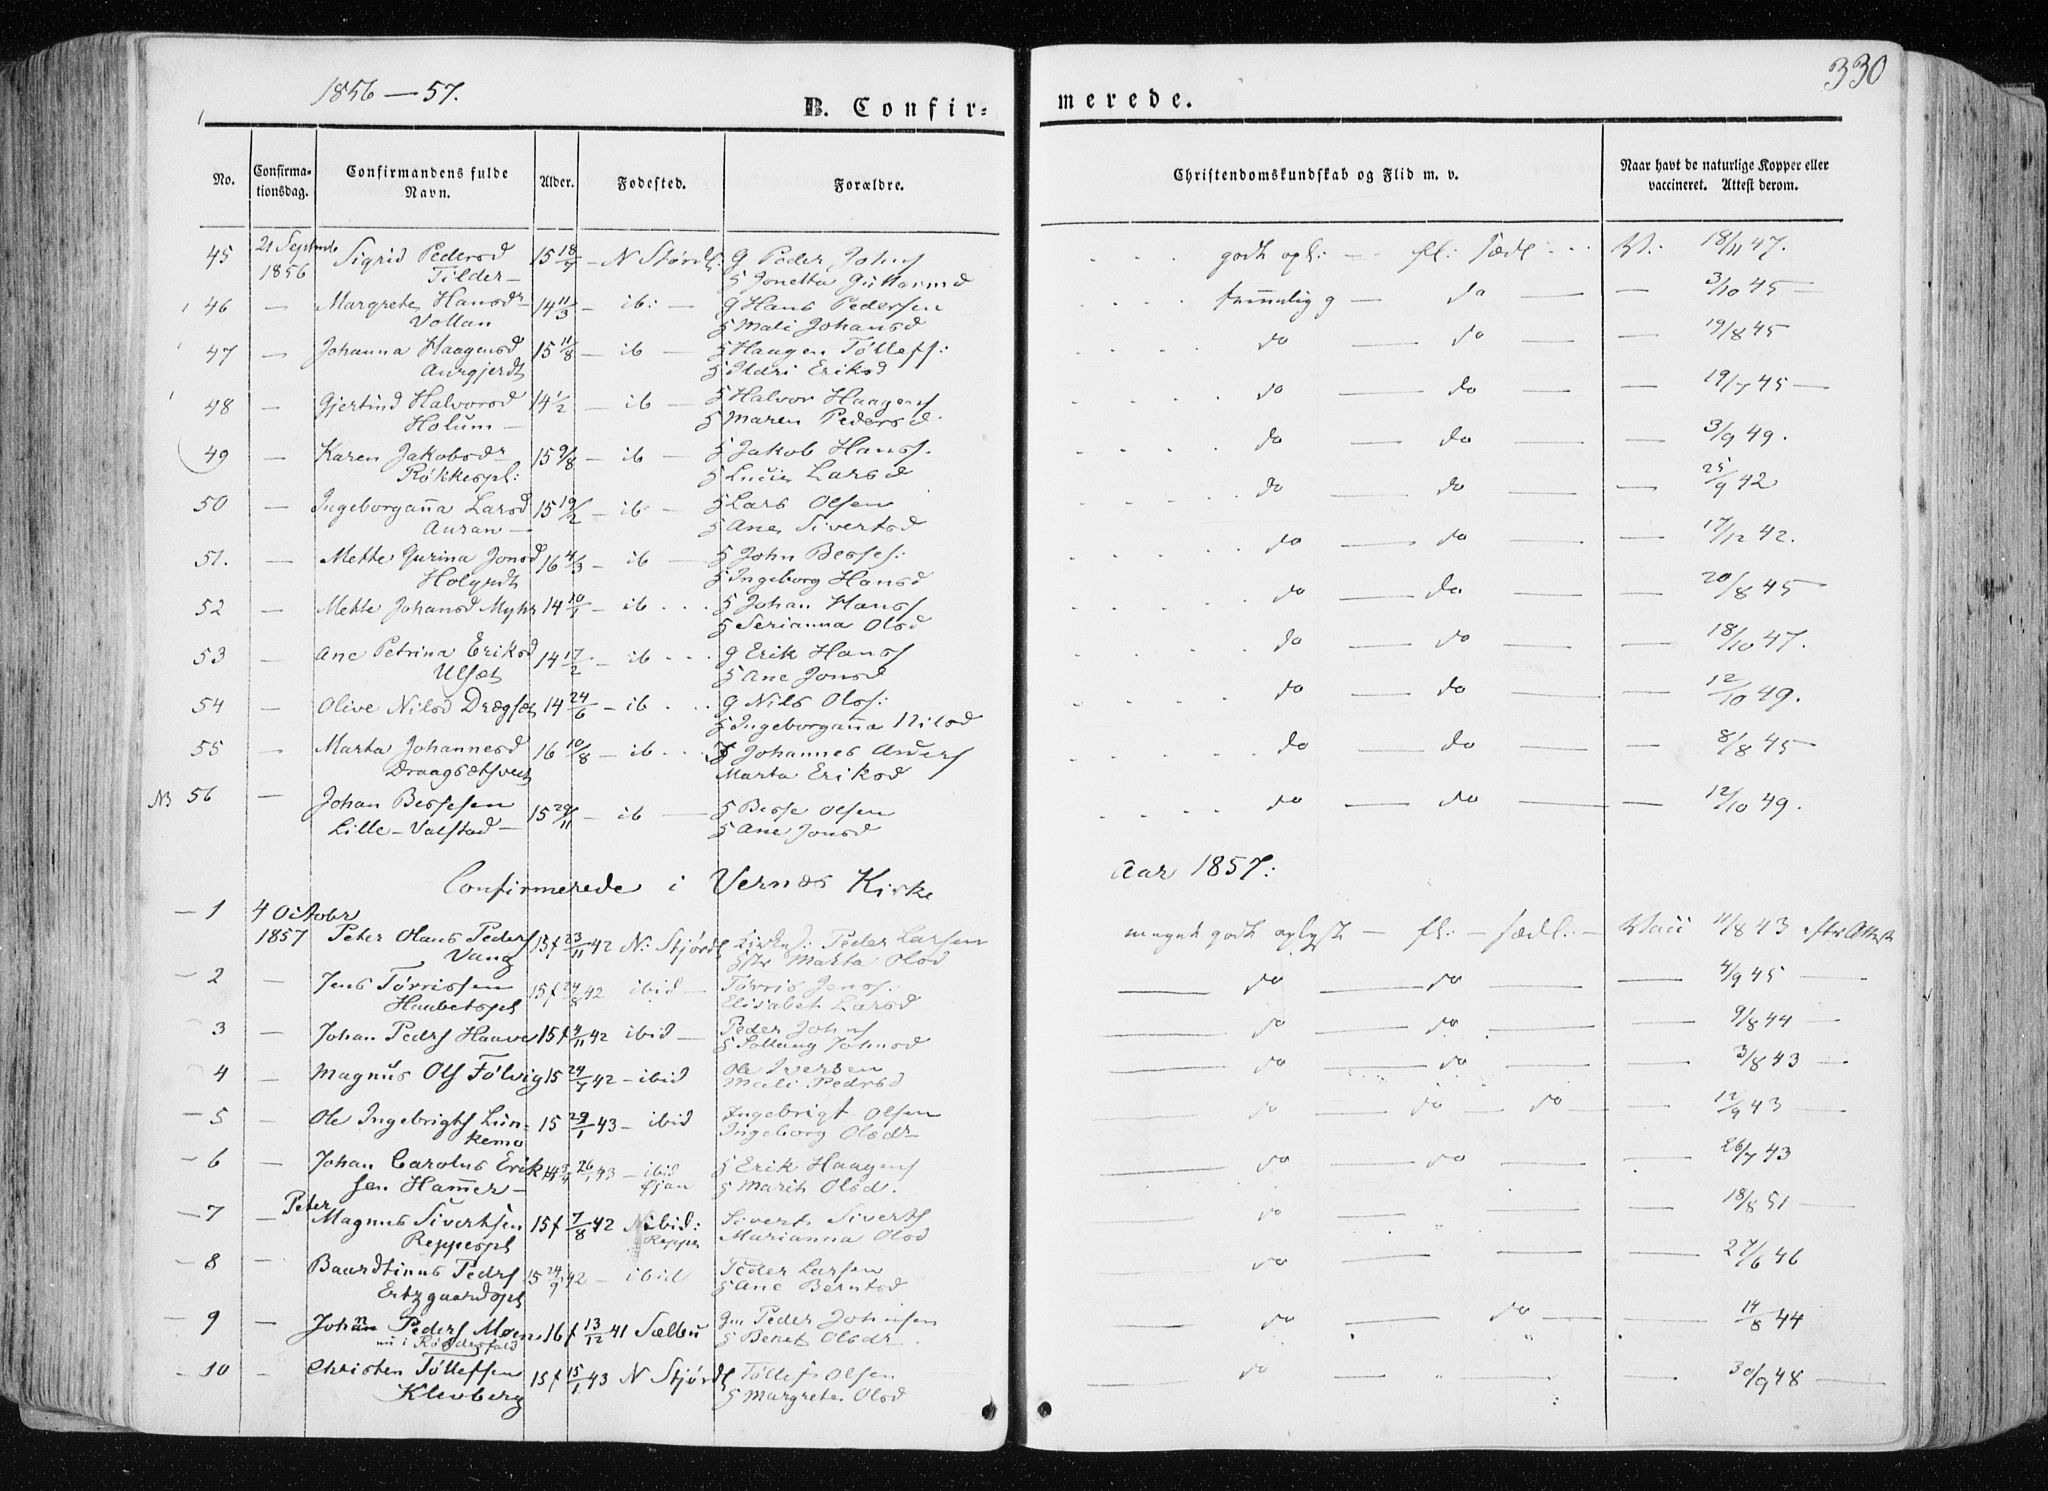 1856–57.
330
B. Confir= merede.
No. Confirma-tionsdag. Confirmandens fulde Navn. Alder. Fodested. Forældre. Christendomskundskab og Flid m. v. Naar havt de naturlige Kopper eller vaccineret. Attest derom.
45 21 Septembr 1856 Sigrid Pedersd 15 18/7 – N Størd: G Peder Johns godt opl: – fl: sædl: V: 18/11 47.
Tilder – 5 Jonetta Guttormsd
46 – Margrete Hansdr 14 11/3 – ib: – G Hans Pedersen temmelig g – do – 3/10 45 –
Vollan 5 Mali Johansd
47 – Johanna Haagensd 15 11/8 – ib – 5 Haagen Tøllefs: do – do – 19/8 45
Aurgjerdt 5 Ildri Eriksd
48 – Gjertrud Halvorsd 14 1/2 – ib – 5 Halvor Haagens do – do – 19/7 45 –
Holum – 5 Maren Pedersd.
49 – Karen Jakobsdr 15 9/8 – ib – 5 Jakob Hans. do – do – 3/9 49.
Røkkespl: 5 Lucie Larsd
50 – Ingeborganna Larsd 15 19/2 – ib – 5 Lars Olsen do – do – 25/9 42
Auran – 5 Ane Sivertsd
51. – Mette Gurina Jonsd 16 4/3 – ib – 5 John Besses: do – do – 17/12 42.
5 Ingeborg Hansd
52 – Mette Johansd Myhr 14 10/1 – ib . . . 5 Johan Hans do – do – 20/8 45
5 Serianna Olsd
53 – Ane Petrina Eriksd 14 17/2 – ib . . . G Erik Hans do – do – 18/10 47.
Ulset 5 Ane Jonsd
54 – Olive Nilsd Drægset 14 24/6 – ib . . . G Nils Ols: do – do – 12/10 49.
5 Ingeborganna Nilsd
55 – Marta Johannesd 16 10/8 – ib . . . 5 Johannes Anders do – do – 8/8 45
Draagsetsvedt Marta Eriksd
NB 56 – Johan Bessesen 15 29/11 – ib – 5 Besse Olsen do – do – 12/10 49.
Lille-Valstad – 5 Ane Jonsd
Confirmerede i Vernæs Kirke Aar 1857:
– 1 4 October
1857 Peter Olaus Peders 15 f 23/11 42 N: Stjørd: Peder Larsen meget godt oplyst – fl: – sædl: – Vacc 11/8 43 efter Attest
Vang Marta Olsd
– 2 – Jens Tørrissen 15 f 24/8 42 ibid – Tørris Jens: do – do – 4/9 45 –
Haabetspl Elisabet Larsd
3 – Johan Peders Haave 15 f 4/11 42 ibid – Peder Johns do – do – 9/8 44 –
5 Solloug Johnsd
4 – Magnus Ols Følvig 15 24/7 42 – ibid Ole Iversen do – do – 3/8 43 –
Mali Pedrsd
– 5 – Ole Ingebrigts Lun= 15 29/1 43 – ibid Ingebrigt Olsen do – do – do – 12/9 43 –
kemo Ingeborg Olsdr
– 6 – Johan Carolus Erik 26/1 43 – ibid 5 Erik Haagens do – do – 26/7 43
sen Hammer – 5 Marit Olsd.
– 7 – Peter Magnus Sivertsen 15 f 7/8 42 ibid: Sivert Siverts do – " – 18/8 51 –
Reppespl Reppe Marianna Olsd
– 8 – Baardtinus Pedrs 15 24/9 42 – ibid Peder Larsen do – 27/6 46
Ertzgaardspl 5 Ane Berntsd
– 9 – Johan Peders Moen 16 f 13/12 41 Sælbu Gm Peder Johnsen do – do – 14/8 44
nu i 5 Beret Olsdr
– 10 – Christen Tøllefsen 15 f 15/1 43 N Stjørd: Tøllef Olsen do – " – 30/9 48 –
Klevberg 5 Margrete Olsd